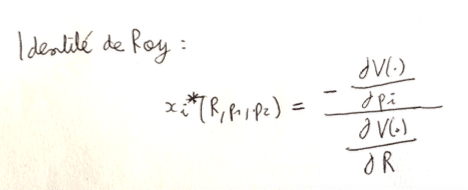 Identité de Roy :
xi*(R, p1, p2) = - ∂V(.)/∂pi / ∂V(.)/∂R